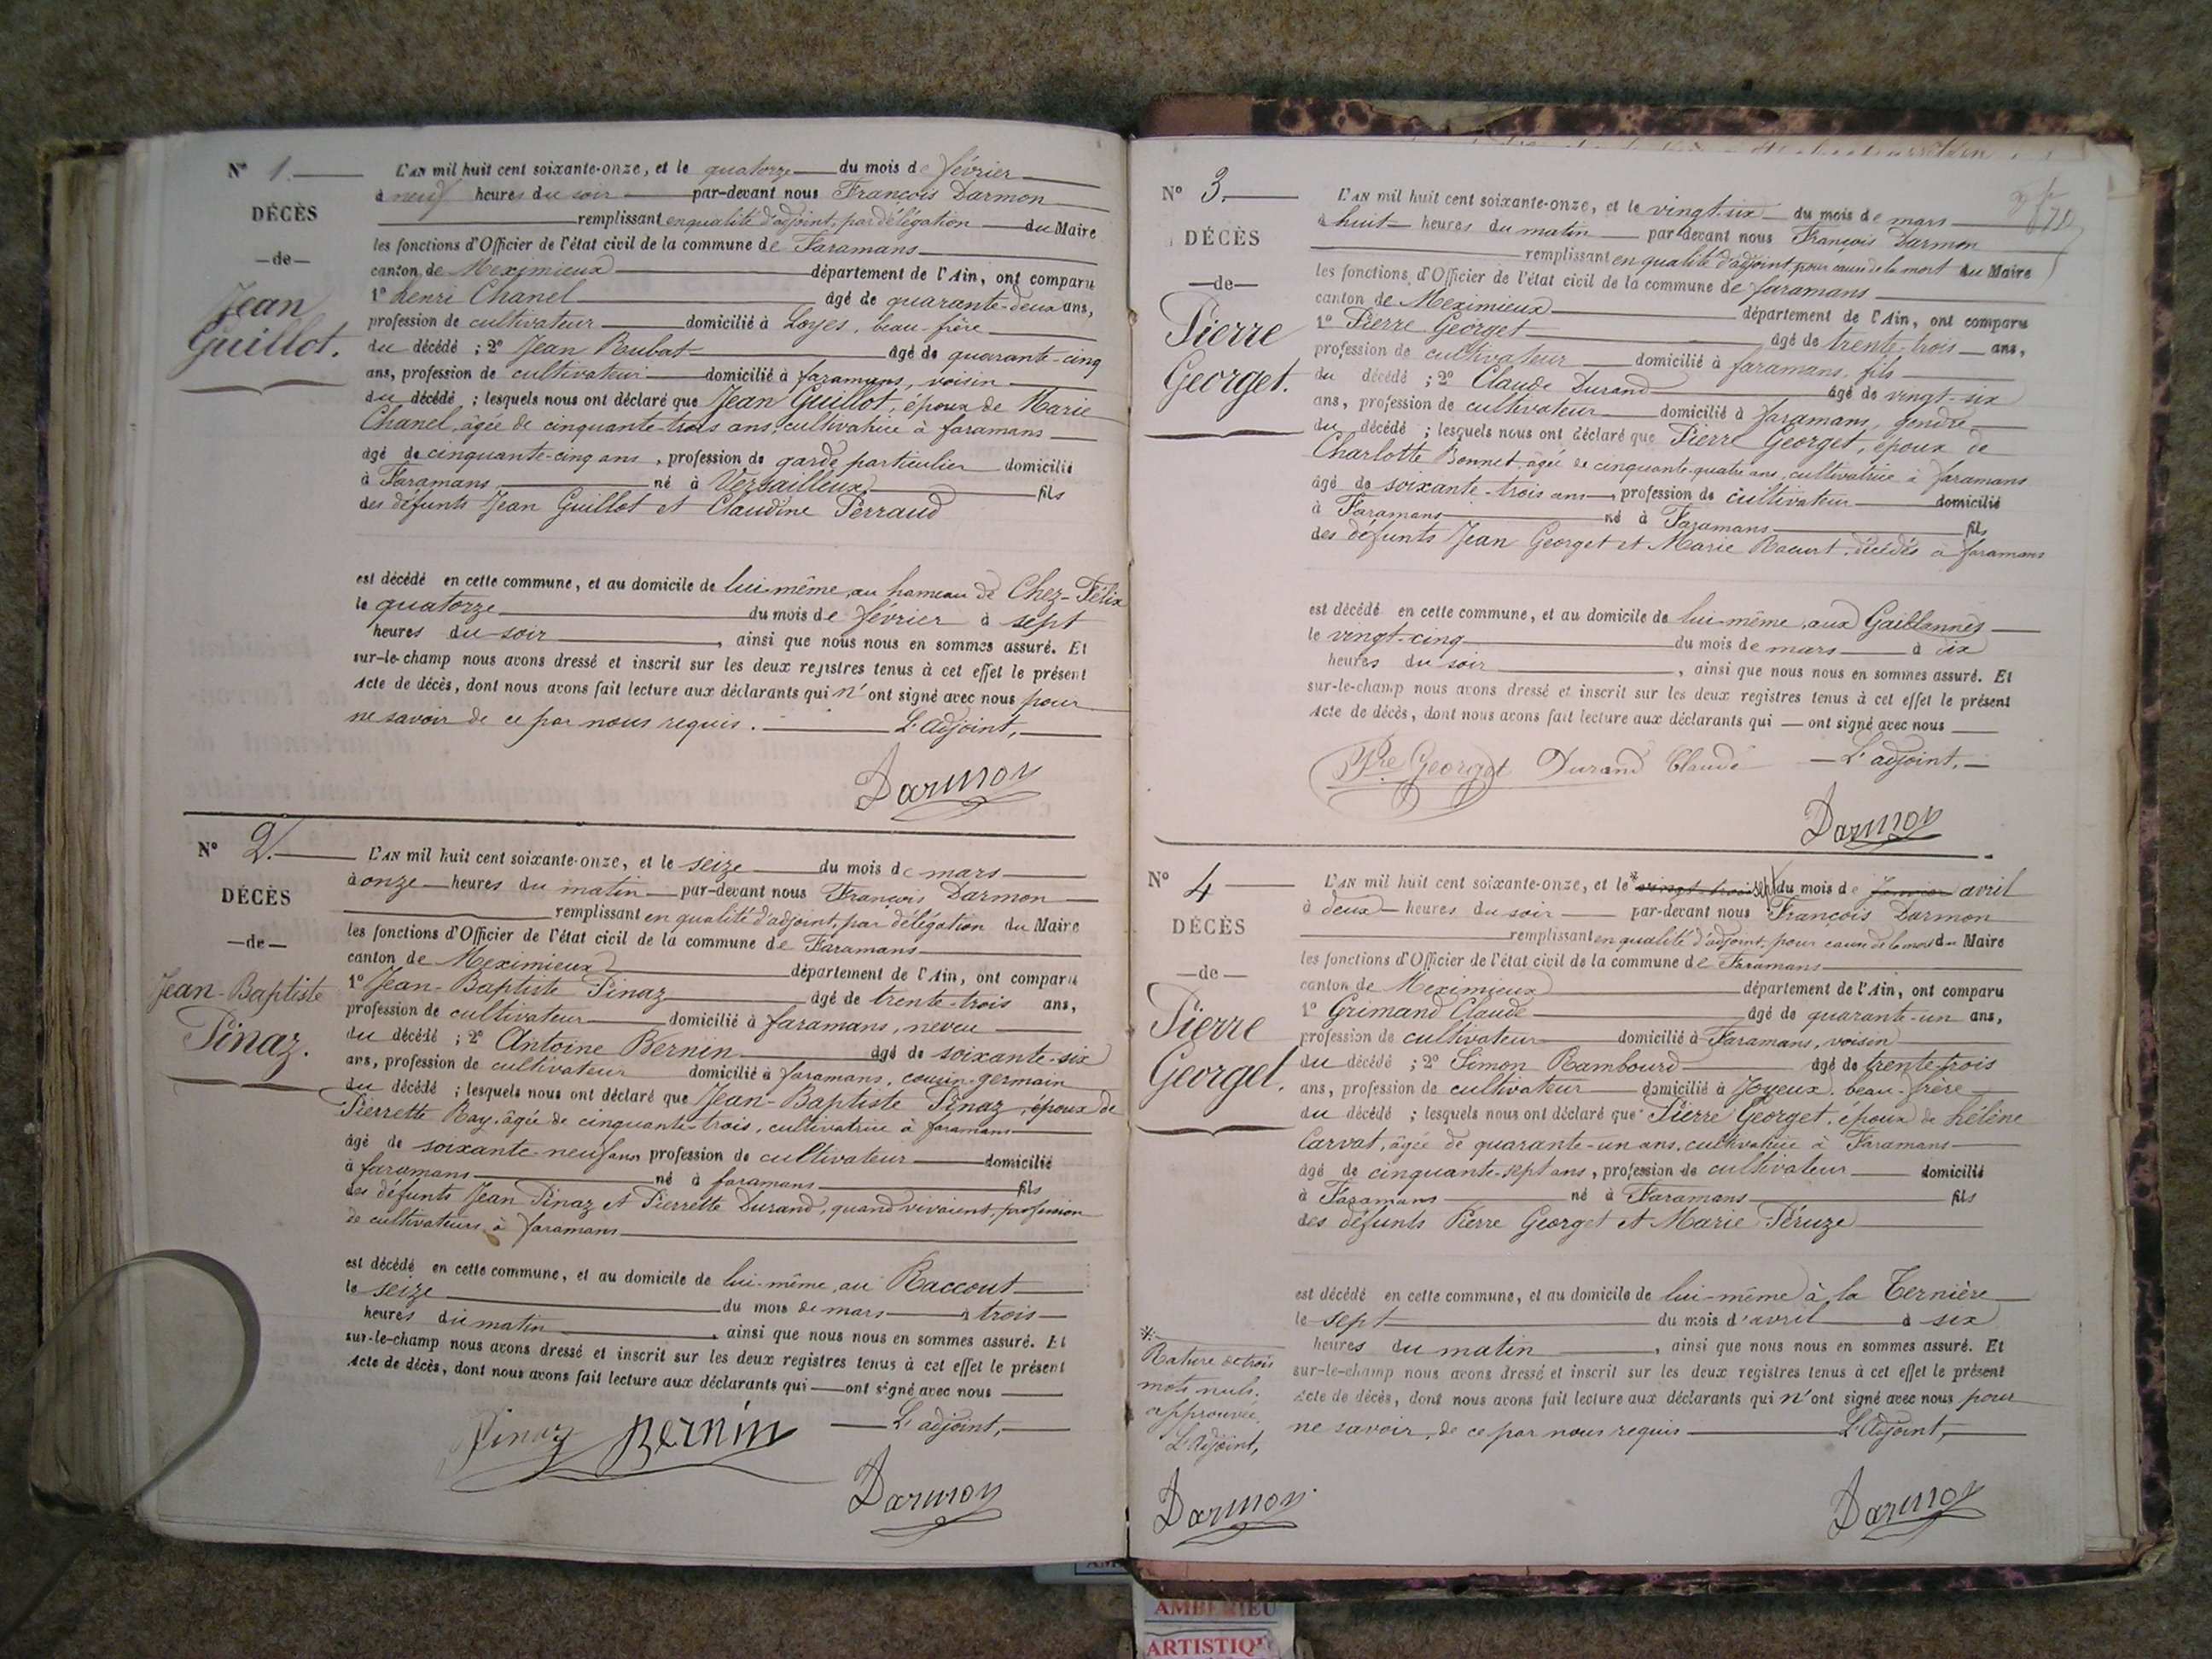 N° 1.
DÉCÈS
—de—
Jean
Guillot.
L'AN mil huit cent soixante-onze, et le quatorze du mois de février
à neuf heures du soir par-devant nous François Darmon
remplissant en qualité d'adjoint, par délégation du Maire
les fonctions d'Officier de l'état civil de la commune de Faramans
canton de Meximieux département de l'Ain, ont comparu
1° henri Chanel âgé de quarante-deux ans,
profession de cultivateur domicilié à Loyes, beau-frère
du décédé ; 2° Jean Rubat âgé de quarante-cinq
ans, profession de cultivateur domicilié à faramans, voisin
du décédé ; lesquels nous ont déclaré que Jean Guillot, époux de Marie
Chanel, âgée de cinquante-trois ans, cultivatrice à faramans
âgé de cinquante-cinq ans, profession de garde particulier domicilié
à Faramans, né à Versailleux fils
des défunts Jean Guillot et Claudine Perraud
est décédé en cette commune, et au domicile de lui-même, au hameau de Chez-Félix
le quatorze du mois de février à sept
heures du soir, ainsi que nous nous en sommes assuré. Et
sur-le-champ nous avons dressé et inscrit sur les deux registres tenus à cet effet le présent
Acte de décès, dont nous avons fait lecture aux déclarants qui n'ont signé avec nous pour
ne savoir de ce par nous requis. L'adjoint,
Darmon
N° 2.
DÉCÈS
—de—
Jean-Baptiste
Pinaz.
L'AN mil huit cent soixante-onze, et le seize du mois de mars
à onze heures du matin par-devant nous François Darmon
remplissant en qualité d'adjoint, par délégation du Maire
les fonctions d'Officier de l'état civil de la commune de Faramans
canton de Meximieux département de l'Ain, ont comparu
1° Jean-Baptiste Pinaz âgé de trente-trois ans,
profession de cultivateur domicilié à faramans, neveu
du décédé ; 2° Antoine Bernin âgé de soixante-six
ans, profession de cultivateur domicilié à faramans, cousin-germain
du décédé ; lesquels nous ont déclaré que Jean-Baptiste Pinaz, époux de
Pierrette Ray, âgée de cinquante-trois, cultivatrice à faramans
âgé de soixante-neuf ans profession de cultivateur domicilié
à faramans né à faramans fils
des défunts Jean Pinaz et Pierrette Durand, quand vivaient, profession
de cultivateurs, à faramans
est décédé en cette commune, et au domicile de lui-même, au Raccout
le seize du mois de mars à trois
heures du matin, ainsi que nous nous en sommes assuré. Et
sur-le-champ nous avons dressé et inscrit sur les deux registres tenus à cet effet le présent
Acte de décès, dont nous avons fait lecture aux déclarants qui — ont signé avec nous
Pinaz Bernin L'adjoint,
Darmon
N° 3.
DÉCÈS
—de—
Pierre
Georget.
L'AN mil huit cent soixante-onze, et le vingt-six du mois de mars
à huit heures du matin par-devant nous François Darmon
remplissant en qualité d'adjoint, pour cause de la mort du Maire
les fonctions d'Officier de l'état civil de la commune de faramans
canton de Meximieux département de l'Ain, ont comparu
1° Pierre Georget âgé de trente-trois ans,
profession de cultivateur domicilié à faramans, fils
du décédé ; 2° Claude Durand âgé de vingt-six
ans, profession de cultivateur domicilié à faramans, gendre
du décédé ; lesquels nous ont déclaré que Pierre Georget, époux de
Charlotte Bonnet, âgée de cinquante-quatre ans, cultivatrice à faramans
âgé de soixante-trois ans, profession de cultivateur domicilié
à Faramans né à Faramans fils
des défunts Jean Georget et Marie décédés à faramans
est décédé en cette commune, et au domicile de lui-même, aux Gaillannes
le vingt-cinq du mois de mars à dix
heures du soir, ainsi que nous nous en sommes assuré. Et
sur-le-champ nous avons dressé et inscrit sur les deux registres tenus à cet effet le présent
Acte de décès, dont nous avons fait lecture aux déclarants qui — ont signé avec nous
Pre Georget Durand Claude L'adjoint,
Darmon
N° 4
DÉCÈS
—de—
Pierre
Georget.
L'AN mil huit cent soixante-onze, et le vingt-trois sept du mois de janvier avril
à deux heures du soir par-devant nous François Darmon
remplissant en qualité d'adjoint, pour cause de la mort du Maire
les fonctions d'Officier de l'état civil de la commune de Faramans
canton de Meximieux département de l'Ain, ont comparu
1° Grimand Claude âgé de quarante-un ans,
profession de cultivateur domicilié à Faramans, voisin
du décédé ; 2° Simon Rambourd âgé de trente-trois
ans, profession de cultivateur domicilié à Joyeux, beau-frère
du décédé ; lesquels nous ont déclaré que Pierre Georget, époux de hélène
Carvat, âgée de quarante-un ans, cultivatrice à Faramans
âgé de cinquante-sept ans, profession de cultivateur domicilié
à Faramans né à Faramans fils
des défunts Pierre Georget et Marie Péruze
est décédé en cette commune, et au domicile de lui-même à la Ternière
le sept du mois d'avril à six
heures du matin, ainsi que nous nous en sommes assuré. Et
sur-le-champ nous avons dressé et inscrit sur les deux registres tenus à cet effet le présent
Acte de décès, dont nous avons fait lecture aux déclarants qui n'ont signé avec nous pour
ne savoir, de ce par nous requis L'Adjoint,
Darmon
Rature de trois
mots nuls.
approuvée.
L'Adjoint,
Darmon
AMBERIEU
ARTISTIQU